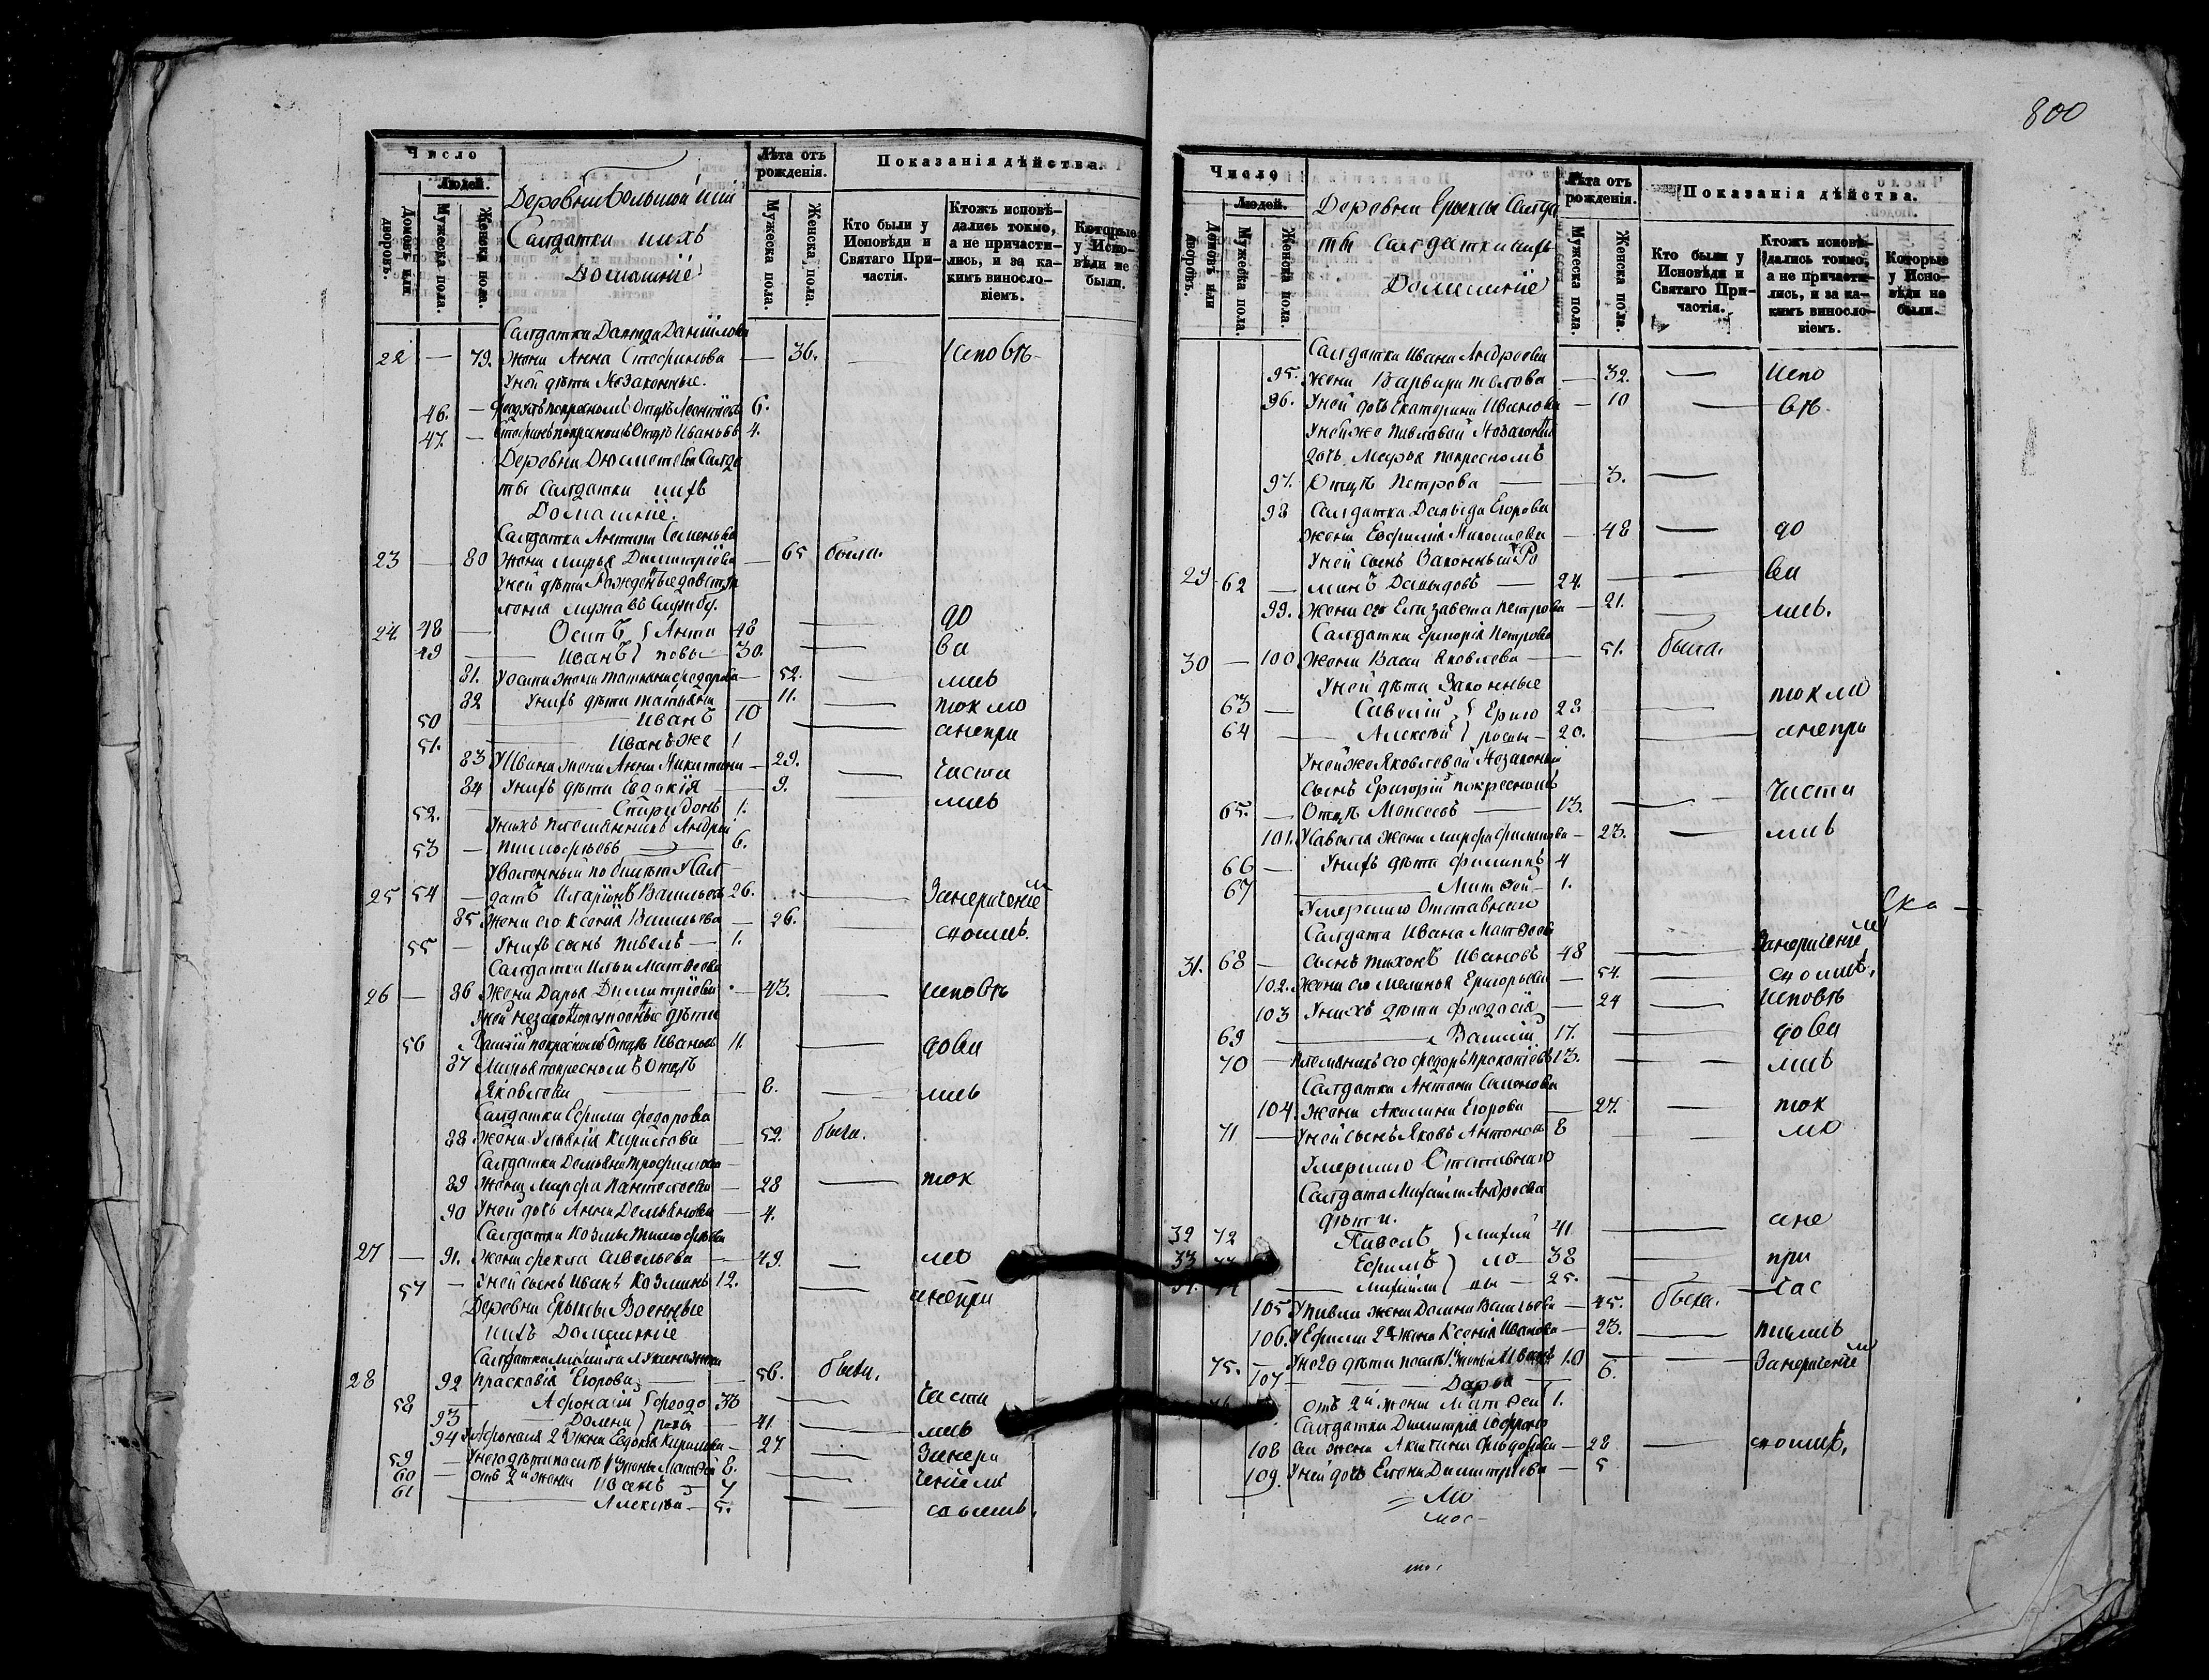 800
Число
Людей.
Домовъ или дворовъ.
Мужеска пола.
Женска пола.
Салдатки ихъ
Домашніе
Лѣта отъ рожденія.
Мужеска пола.
Женска пола.
Показанія дѣйства.
Кто были у Исповѣди и Святаго Причастія.
Ктожъ исповѣдались токмо, а не причастились, и за какимъ винословіемъ.
Которые у Исповѣди не были.
Салдатки Давыда Данилова
22 — 79. жена Анна Стефанова — 36. — Исповѣ-
Уней дѣти Незаконные.
46. — покресномъ Отцѣ Леонтіевъ 6.
47. — Стефанъ покресномъ Отцѣ Ивановъ 4.
Деревни Дюсметевы Салда
ты Салдатки ихъ
Домашніе.
Салдатки Антипа Семенова
23 — 80 жена Марья Димитріева — 65 была.
Уней дѣти Рожденные
мужа въ Службу.
24 48 — Осипъ } Анти 48 — до
49 — Иванъ } повы — 30. — ва
81. У Осипа жена Татьяна Федорова — 52. — лись
82 Унихъ дѣти Татьяна — 11. — токмо
50 — Иванъ 10 — анепри
51. — Иванъ же 1
83 У Ивана жена Анна Никитина — 29. — части
84 Унихъ дѣти Евдокія — 9. — лись
52. — Спиридонъ 1.
Унихъ племянникъ Андрей
53 — Тимофѣевъ — 6.
Уволенный по билету Сал-
25 54 — датъ Иларіонъ Васильевъ 26. — Занерачение
85 жена его Ксенія Васильева — 26. — сношъ.
55 — Унихъ сынъ Павелъ — 1.
Салдатки Ильи Матвеева
26 — 86 жена Дарья Димитріева — 43. — исповѣ
Уней незаконнорожденные дѣти
56 Василій покресномъ Отцѣ Ивановъ 11. — дова
87 Марья покресномъ Отцѣ
Яковлева — 8. — лись
Салдатки Ефима Федорова
88 жена Ульянія Кирилова — 52. была.
Салдатки Демьяна Трофимова
89 жена Марфа Пантелеева — 28 — ток
90 Уней дочь Анна Демьянова — 4.
Салдатки Козмы Тимофѣева
27 — 91. жена Фекла Савельева — 49. — мо
57 — Уней сынъ Иванъ Козминъ 12. — анепри
Деревни Ерыксы Военные
ихъ Домашніе
28 92 Прасковія Егорова — 56. была.
58 — Афонасій } Федо 38 — части
93 — Домна } ровы — 41. — лись
94 У Афонасія 2я жена Евдокія Кирилова — 27 — Занера
59 — Унего дѣти Матвей 8. — ченіемъ
60 — отъ 2й жены Иванъ — 7
61 — Алексѣй — 5. — сношъ.
Число
Людей.
Домовъ или дворовъ.
Мужеска пола.
Женска пола.
Деревни Ерыксы Салда
ты Салдатки ихъ
Домашніе
Лѣта отъ рожденія.
Мужеска пола.
Женска пола.
Показанія дѣйства.
Кто были у Исповѣди и Святаго Причастія.
Ктожъ исповѣдались токмо, а не причастились, и за какимъ винословіемъ.
Которые у Исповѣди не были.
Салдатки Ивана Андреева
95. жена Варвара — 32. — Испо
96. Уней дочь Екатерина Иванова — 10 — вѣ.
Уней же Павловой Незаконная
дочь Марья покресномъ
97. Отцѣ Петрова — 3. —
98 Салдатки Давыда Егорова
жена Евфимія Николаева — 48 — до
Уней сынъ Законный Ро
29 62 — манъ Давыдовъ — 24. — ва
99. жена его Елизавета Петрова — 21. — лись.
Салдатки Григорія Петрова
30 — 100 жена Васса Яковлева — 51. была.
Уней дѣти Законные
63 — Савелій } Григо 28 — токмо
64 — Алексѣй } рьевы — 20. — анепри
Уней же Яковлевой Незаконный
сынъ Григорій покресномъ
65. — Отцѣ Моисеевъ — 13. — части
101. У Савелія жена Марфа Филипова — 23. — лись
66 — Унихъ дѣти Филиппъ 4
67 — Матвей — 1.
Умершаго Отставнаго
Салдата Ивана Матвеева
Ска —
31. 68 — сынъ Тихонъ Ивановъ 48 — Занерачение
102. жена его Меланья Григорьева — 54. — сношъ,
103 Унихъ дѣти Феодосія — 24 — Исповѣ
69 — Василій 17. — дова
70 — Племянникъ его Федоръ Прокопіевъ 13. — лись
Салдатки Антона Семенова
104. жена Акилина Егорова — 27. — ток
71 — Уней сынъ Яковъ Антоновъ 8 — мо
Умершаго Отставнаго
Салдата Михайла Андреева
дѣти.
32 72 Павелъ } Михай 41 — ане
33 Ефимъ } ло — 38 — при
Михайла } вы — 25. — час
105 У Павла жена Домна Васильева — 45. была.
106. У Ефима 2я жена Ксенія Иванова — 23. — тились
75. — Унего дѣти Иванъ 10 — Занерачение
107 — Дарья — 6.
отъ 2й жены Матвей 1.
Салдатки Димитрія Софроно
108 ва жена Акилина Федорова — 28 — сношъ,
109. Уней дочь Елена Димитріева — 5